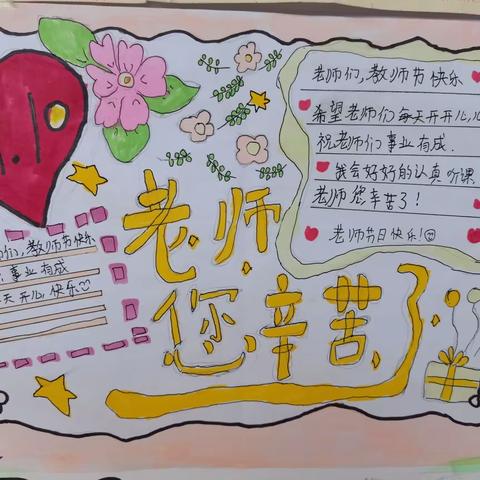 9.10
老师您辛苦了
老师们,教师节快乐
希望老师们每天开开心心
祝老师们事业有成.
我会好好的认真听课
老师您辛苦了!
老师节日快乐!
们,教师节快乐
事业有成
天开心,快乐